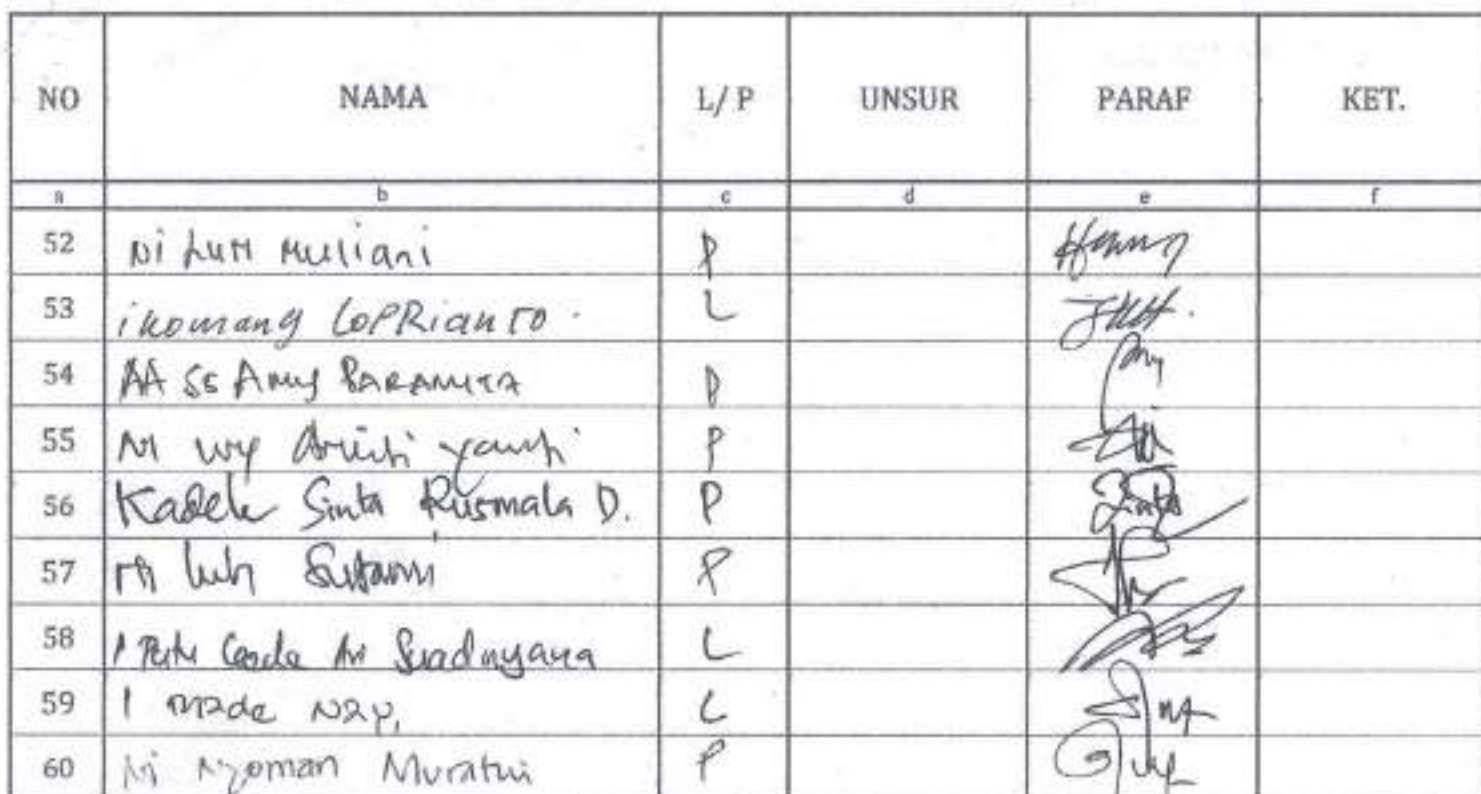 NO NAMA L/ P UNSUR PARAF KET.
a b c d e f
52 Ni LUH Muliani P
53 i komang LoPRianto. L
54 AA SG Anug PARAMITA P
55 Ni wy yanti P
56 Kadek Sinta Rusmala D. P Sinta
57 Ni luh Sutarmi P
58 I Putu Gede Ari Suadnyana L
59 I made L
60 Ni Nyoman Muratni P